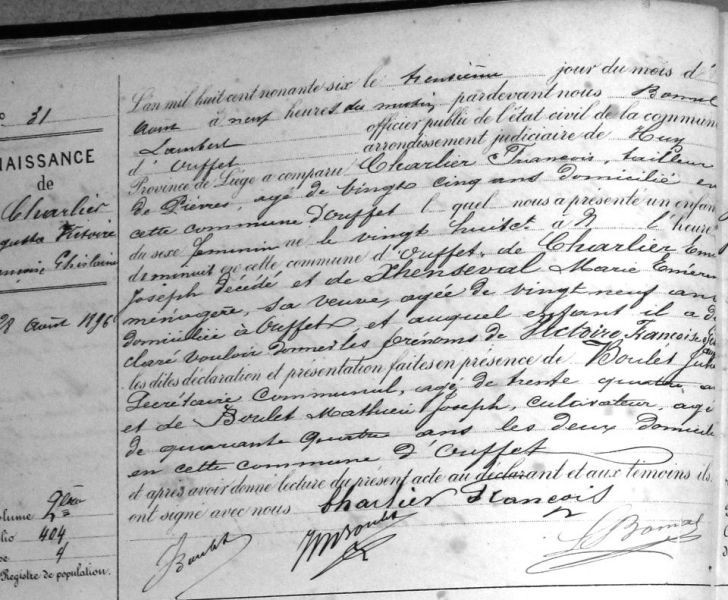 31
NAISSANCE
de
Charlier
Victoire
Ghislaine
28 Aout 1896
volume 2ème
folio 404
4
Registre de population.
L'an mil huit cent nonante six le trentième jour du mois d'
Aout à neuf heures du matin, pardevant nous Bomal
Lambert officier public de l'état civil de la commune
d' Ouffet arrondissement judiciaire de Huy
Province de Liége a comparu Charlier François, tailleur
de Pierres, agé de vingt cinq ans domicilié en
cette commune d'Ouffet l quel nous a présenté un enfant
du sexe feminin né le vingt huit ct à l heure
de minuit en cette commune d'Ouffet, de Charlier
Joseph décédé et de Thenseval Marie
ménagère, sa veuve, agée de vingt neuf ans
domiciliée à Ouffet, et auquel enfant il a dé
claré vouloir donner les prénoms de Victoire Françoise
les dites déclaration et présentation faites en présence de Boulet Jules
Secrétaire Communal, agé de trente quatre a
et de Boulet Mathieu Joseph, cultivateur, agé
de quarante quatre ans les deux domicilié
en cette commune d'Ouffet
et après avoir donné lecture du présent acte au déclarant et aux témoins ils
ont signé avec nous Charlier François
J Boulet MJ Boulet L Bomal